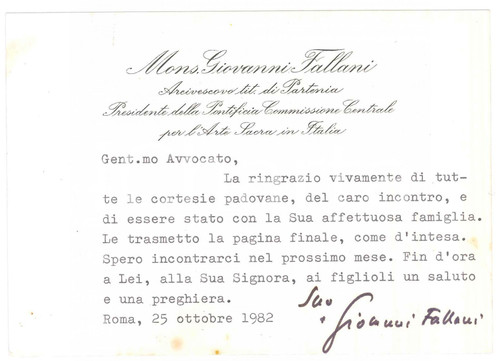 Mons. Giovanni Fallani
Arcivescovo tit. di Partenia
Presidente della Pontificia Commissione Centrale
per l'Arte Sacra in Italia
Gent.mo Avvocato,
La ringrazio vivamente di tut-
te le cortesie padovane, del caro incontro, e
di essere stato con la Sua affettuosa famiglia.
Le trasmetto la pagina finale, come d'intesa.
Spero incontrarci nel prossimo mese. Fin d'ora
a Lei, alla Sua Signora, ai figlioli un saluto
e una preghiera.
Suo
Roma, 25 ottobre 1982
+ Giovanni Fallani